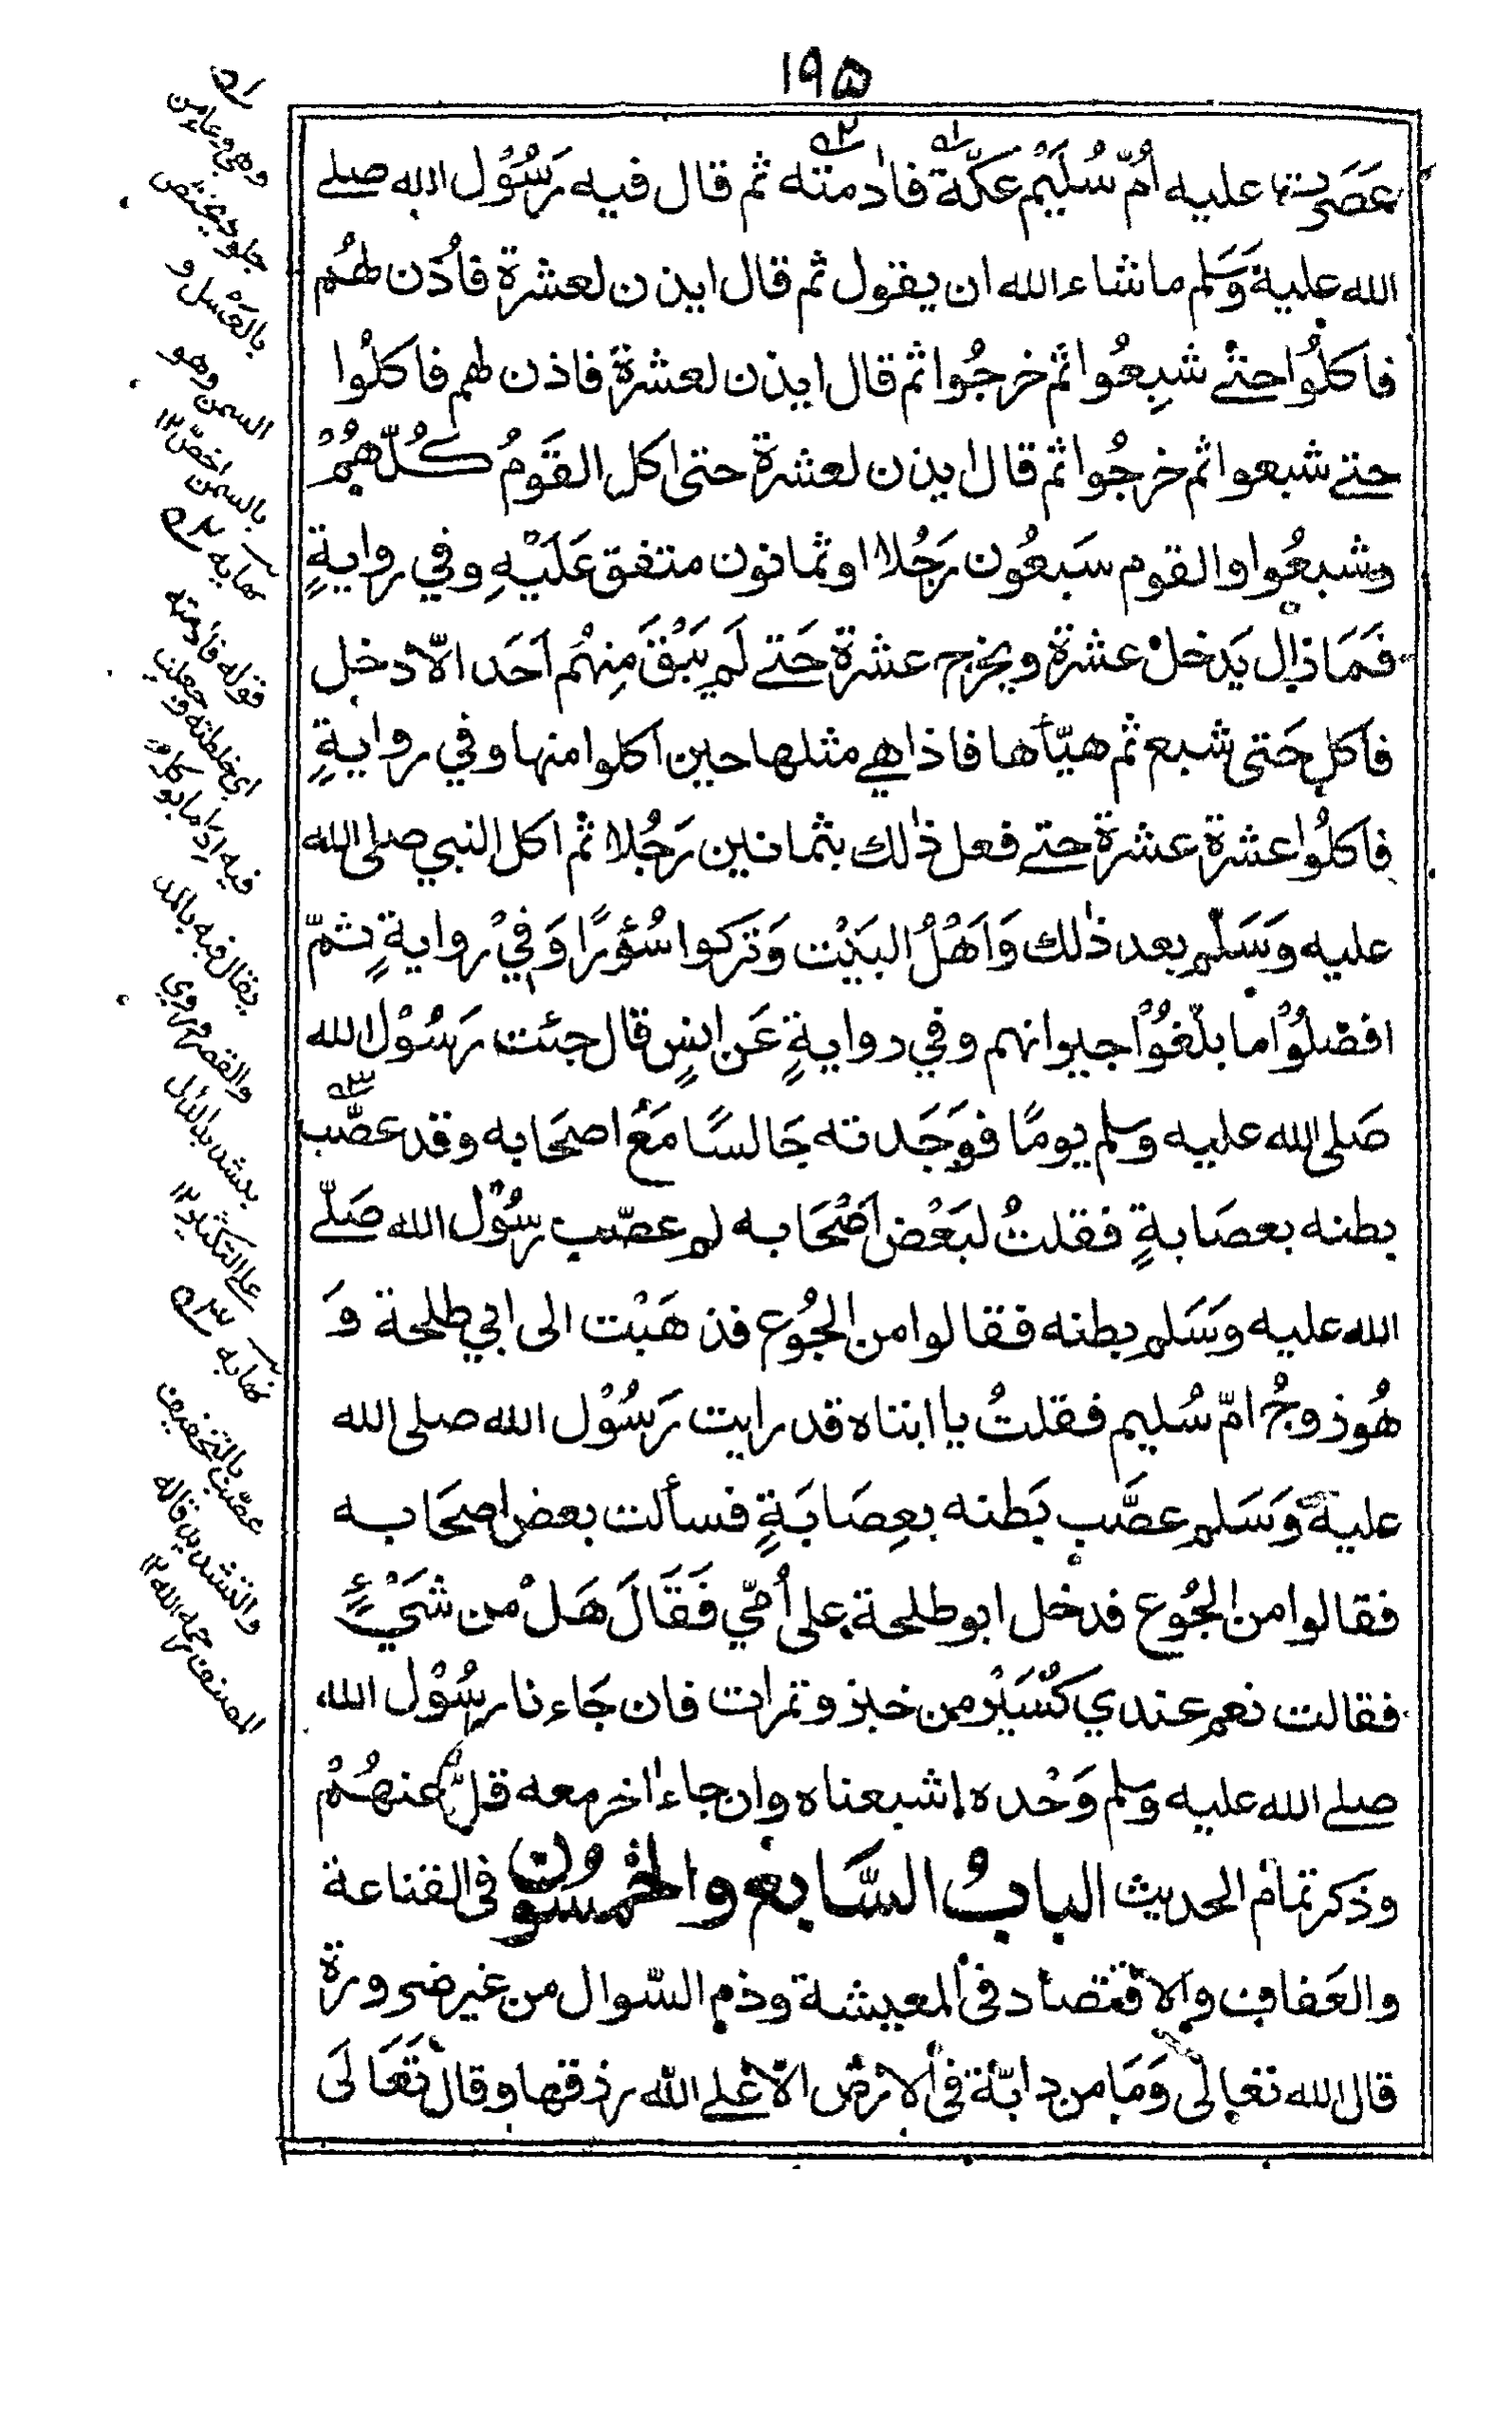 ١٩٥
عَصَرت عليه اُمّ سُلَيْم عكّة فادمته ثم قال فيه رَسُوْل الله صلے
الله عليه وَسَلم ماشاء الله ان يقول ثم قال ايذن لعشرة فاُذن لهُم
فاكلُوا حتے شبِعُوا ثم خرجُوا ثم قال ايذن لعشرة فاذن لهم فاكلُوا
حتے شبعوا ثم خرجُوا ثم قال ايذن لعشرة حتى اكل القَومُ كُلّهُمْ
وشبعُوا والقوم سَبعُون رَجُلا اوثمانون متفق عَلَيْهِ وفي روايةٍ
فَمَا زال يَدخلْ عشرة ويخرج عشرة حَتے لَم يَبْقَ مِنهُم اَحَد الّا دخل
فاكل حَتى شبع ثم هيّأها فاذا هے مثلها حين اكلوا منها وفي روايةٍ
فاكلُوا عشرة عشرة حتے فعل ذٰلك بثمانين رَجُلا ثم اكل النبي صلى الله
عليه وَسَلم بعد ذٰلك وَاَهْلُ البَيْت وَتركوا سُؤرًا وَفيْ روايةٍ ثمّ
افضلُوْا ما بلّغُوْا جيرانهم وفي روايةٍ عَن انسٍ قال جئت رَسُوْل الله
صَلى الله عليه وسلم يومًا فوَجَدته جَالسًا مَعْ اصحَابه وقد عصَّب
بطنه بعصَابةٍ فقلتُ لبَعْض اَصْحَابه لم عصّب رسُوْل الله صَلّے
الله عليه وَسَلم بطنه فقالوا من الجُوع فذهَبْت الى ابي طلحة وَ
هُو زوجُ امّ سُليم فقلتُ يا ابتاه قد رايت رَسُوْل الله صلى الله
عليه وَسَلم عصَّب بَطنه بعِصَابَةٍ فسألت بعض اصحَابه
فقالوا من الجُوع فدخل ابو طلحة على اُمّي فَقَالَ هَلْ من شَيْءٍ
فقالت نعم عندي كِسَيْر من خبز وتمرات فان جَاءنا رسُوْل الله
صلے الله عليه وسلم وَحْده اشبعناه وان جاء اٰخر معه قلّ عنهُمْ
وذكر تمام الحديث البابُ السَّابع والخمسُون فى القناعة
والعَفاف والاقتصاد فى المعيشة وذم السّوال من غير ضرورة
قال الله تعالى وَمَا من دابّة فى الارض الّا عَلے الله رزقها وقال تَعَالَى
ا
وهي وعاء من
جلود يختص
بالعَسل و
السمن وهو
بالسمن اخصّ ١٢
نهايه ٢
قوله فادمته
اي خلطته وجعلت
فيه اِدَاما يوكل
يقال فيه بالمد
والقصر وروي
بتشديد الدال
على التكثير ١٢
نهايه ٣
عصّب بالتخفيف
والتشديد قاله
المصنف رحمه الله ١٢